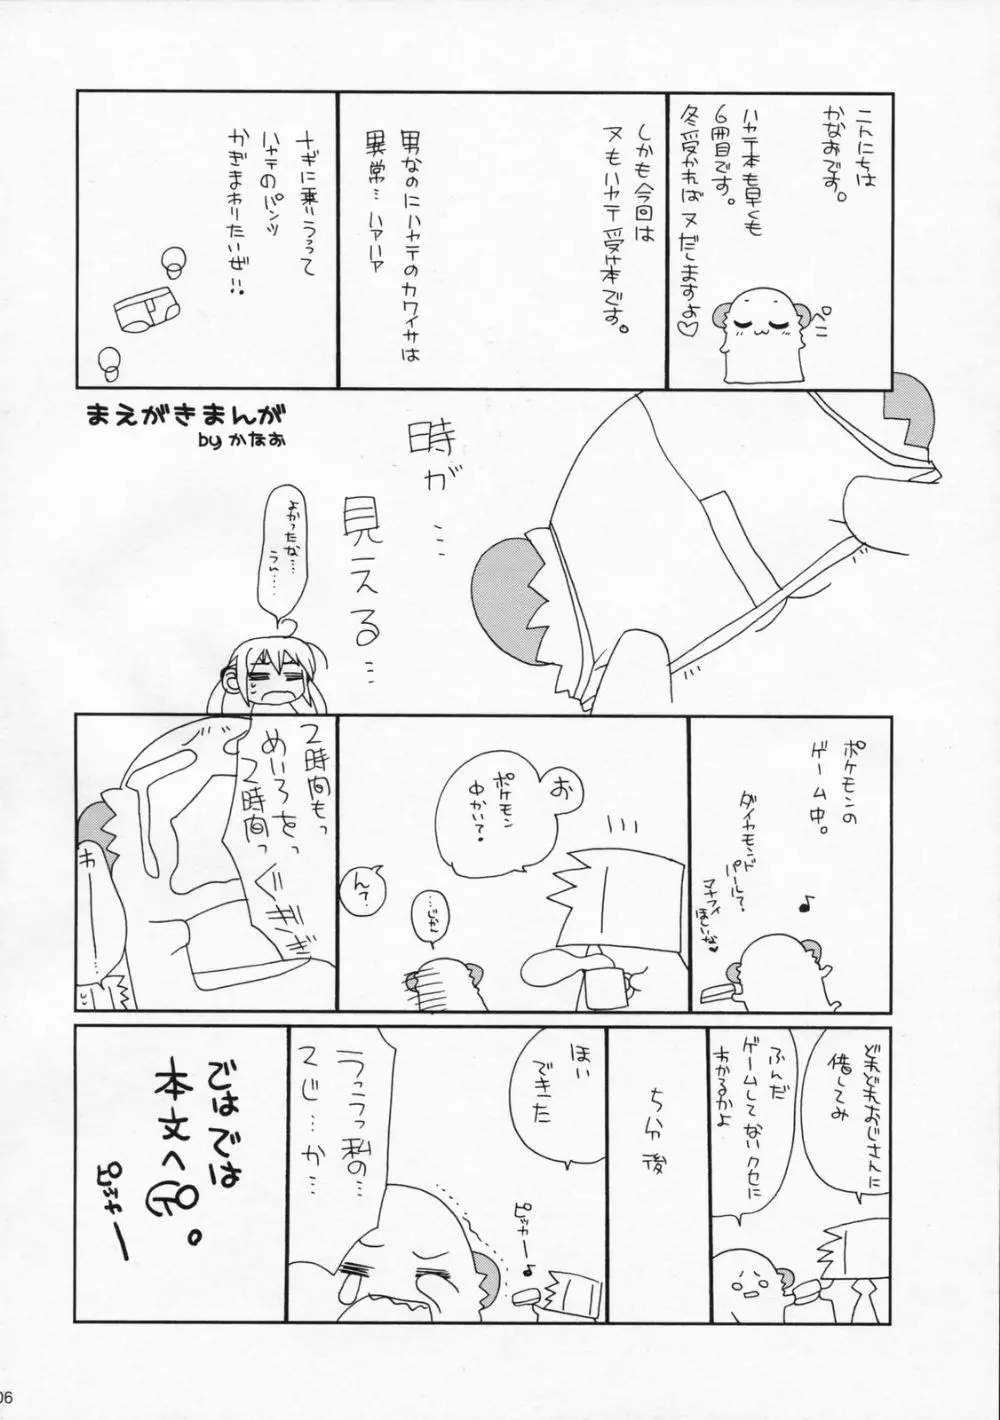 こんにちは
かなおです。
ハヤテ本も早くも
6冊目です。
冬受かればヌだしますよ♡
ペこ
しかも今回は
ヌもハヤテ受け本です。
男なのにハヤテのカワイサは
異常…ハァハァ
ナギに乗りうつって
ハヤテのパンツ
かぎまわりたいぜ!!
まえがきまんが
by かなお
時が…
見える…
よかったな…
うん……
ポケモンの
ゲーム中。
ダイヤモンド
パールで。
マナフィ
ほしいな♥
お
ポケモン
中かい?
…じかん
んで?
2時間もっ
めいろをっ
2時間っ
ぐぎぎぎ
どれどれおじさんに
借してみ
ふんだ
ゲームしてないクセに
わかるかよ
5分後
ほい
できた
ピッカー♪
うっうっ私の…
2じ…か…
ではでは
本文へGO。
ピッカー
06